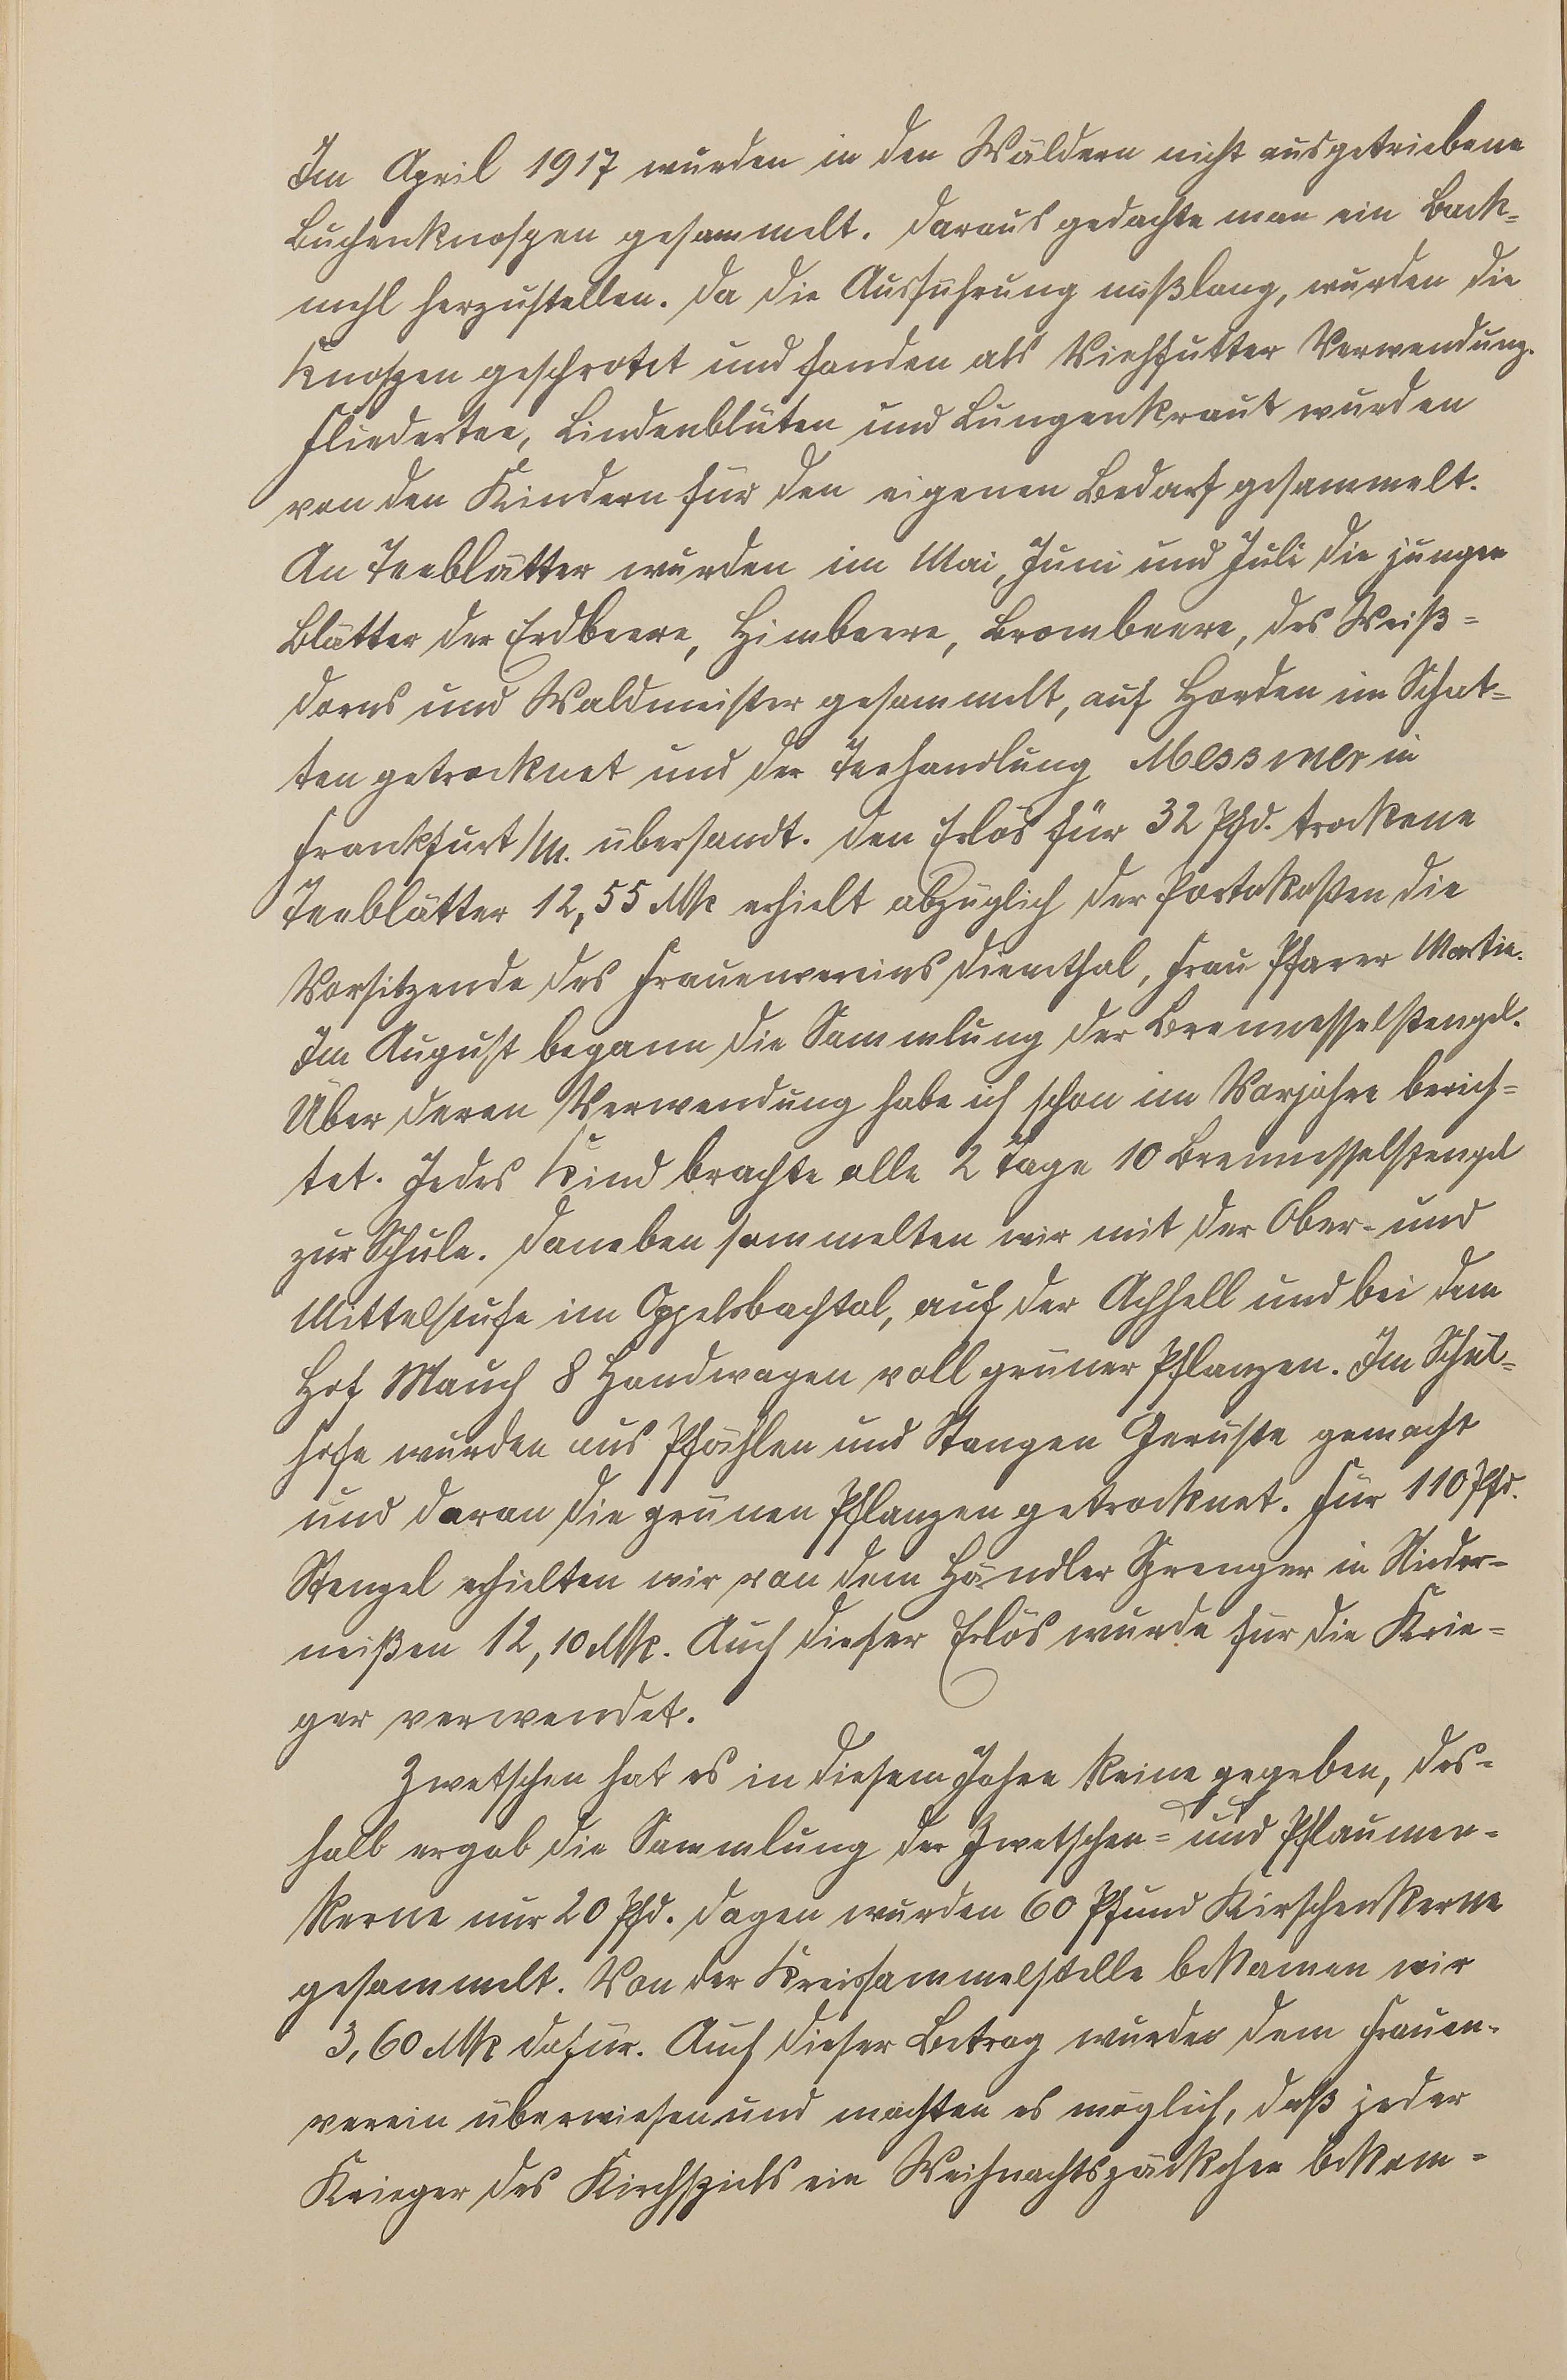 Im April 1917 wurden in den Wäldern nicht ausgetriebene
Buchenknospen gesammelt. Daraus gedachte man ein Back-
mehl herzustellen. Da die Ausführung mißlang, wurden die
Knospen geschrotet und fanden als Viehfutter Verwendung.
Fliedertee, Lindenblüten und Lungenkraut wurden
von den Kindern für den eigenen Bedarf gesammelt.
An Teeblätter wurden im Mai, Juni und Juli die jungen
Blätter der Erdbeere, Himbeere, Brombeere, des Weiß-
dorns und Waldmeister gesammelt, auf Horden im Schat-
ten getrocknet und der Teehandlung Messmer in
Frankfurt/M. übersandt. Den Erlös für 32 Pfd. trockene
Teeblätter 12,55 Mk erhielt abzüglich der Portokosten die
Vorsitzende des Frauenvereins Dienthal, Frau Pfarrer Martin.
Im August begann die Sammlung der Brennesselstengel.
Über deren Verwendung habe ich schon im Vorjahre berich-
tet. Jedes Kind brachte alle 2 Tage 10 Brennesselstengel
zur Schule. Daneben sammelten wir mit der Ober- und
Mittelstufe im Oppelsbachtal, auf der Achhell und bei dem
Hof Mauch 8 Handwagen voll grüner Pflanzen. Im Schul-
hofe wurden aus Pfählen und Stangen Gerüste gemacht
und daran die grünen Pflanzen getrocknet. Für 110 Pfd.
Stengel erhielten wir von dem Händler Sprenger in Nieder-
neißen 12,10 Mk. Auch dieser Erlös wurde für die Krie-
ger verwendet.
Zwetschen hat es in diesem Jahre keine gegeben, des-
halb ergab die Sammlung der Zwetschen- und Pflaumen-
kerne nur 20 Pfd. Dagen wurden 60 Pfund Kirschenkerne
gesammelt. Von der Kreissammelstelle bekamen wir
3,60 Mk dafür. Auch dieser Betrag wurden dem Frauen-
verein überwiesen und machten es möglich, daß jeder
Krieger des Kirchspiels ein Weihnachtspäckchen bekam-